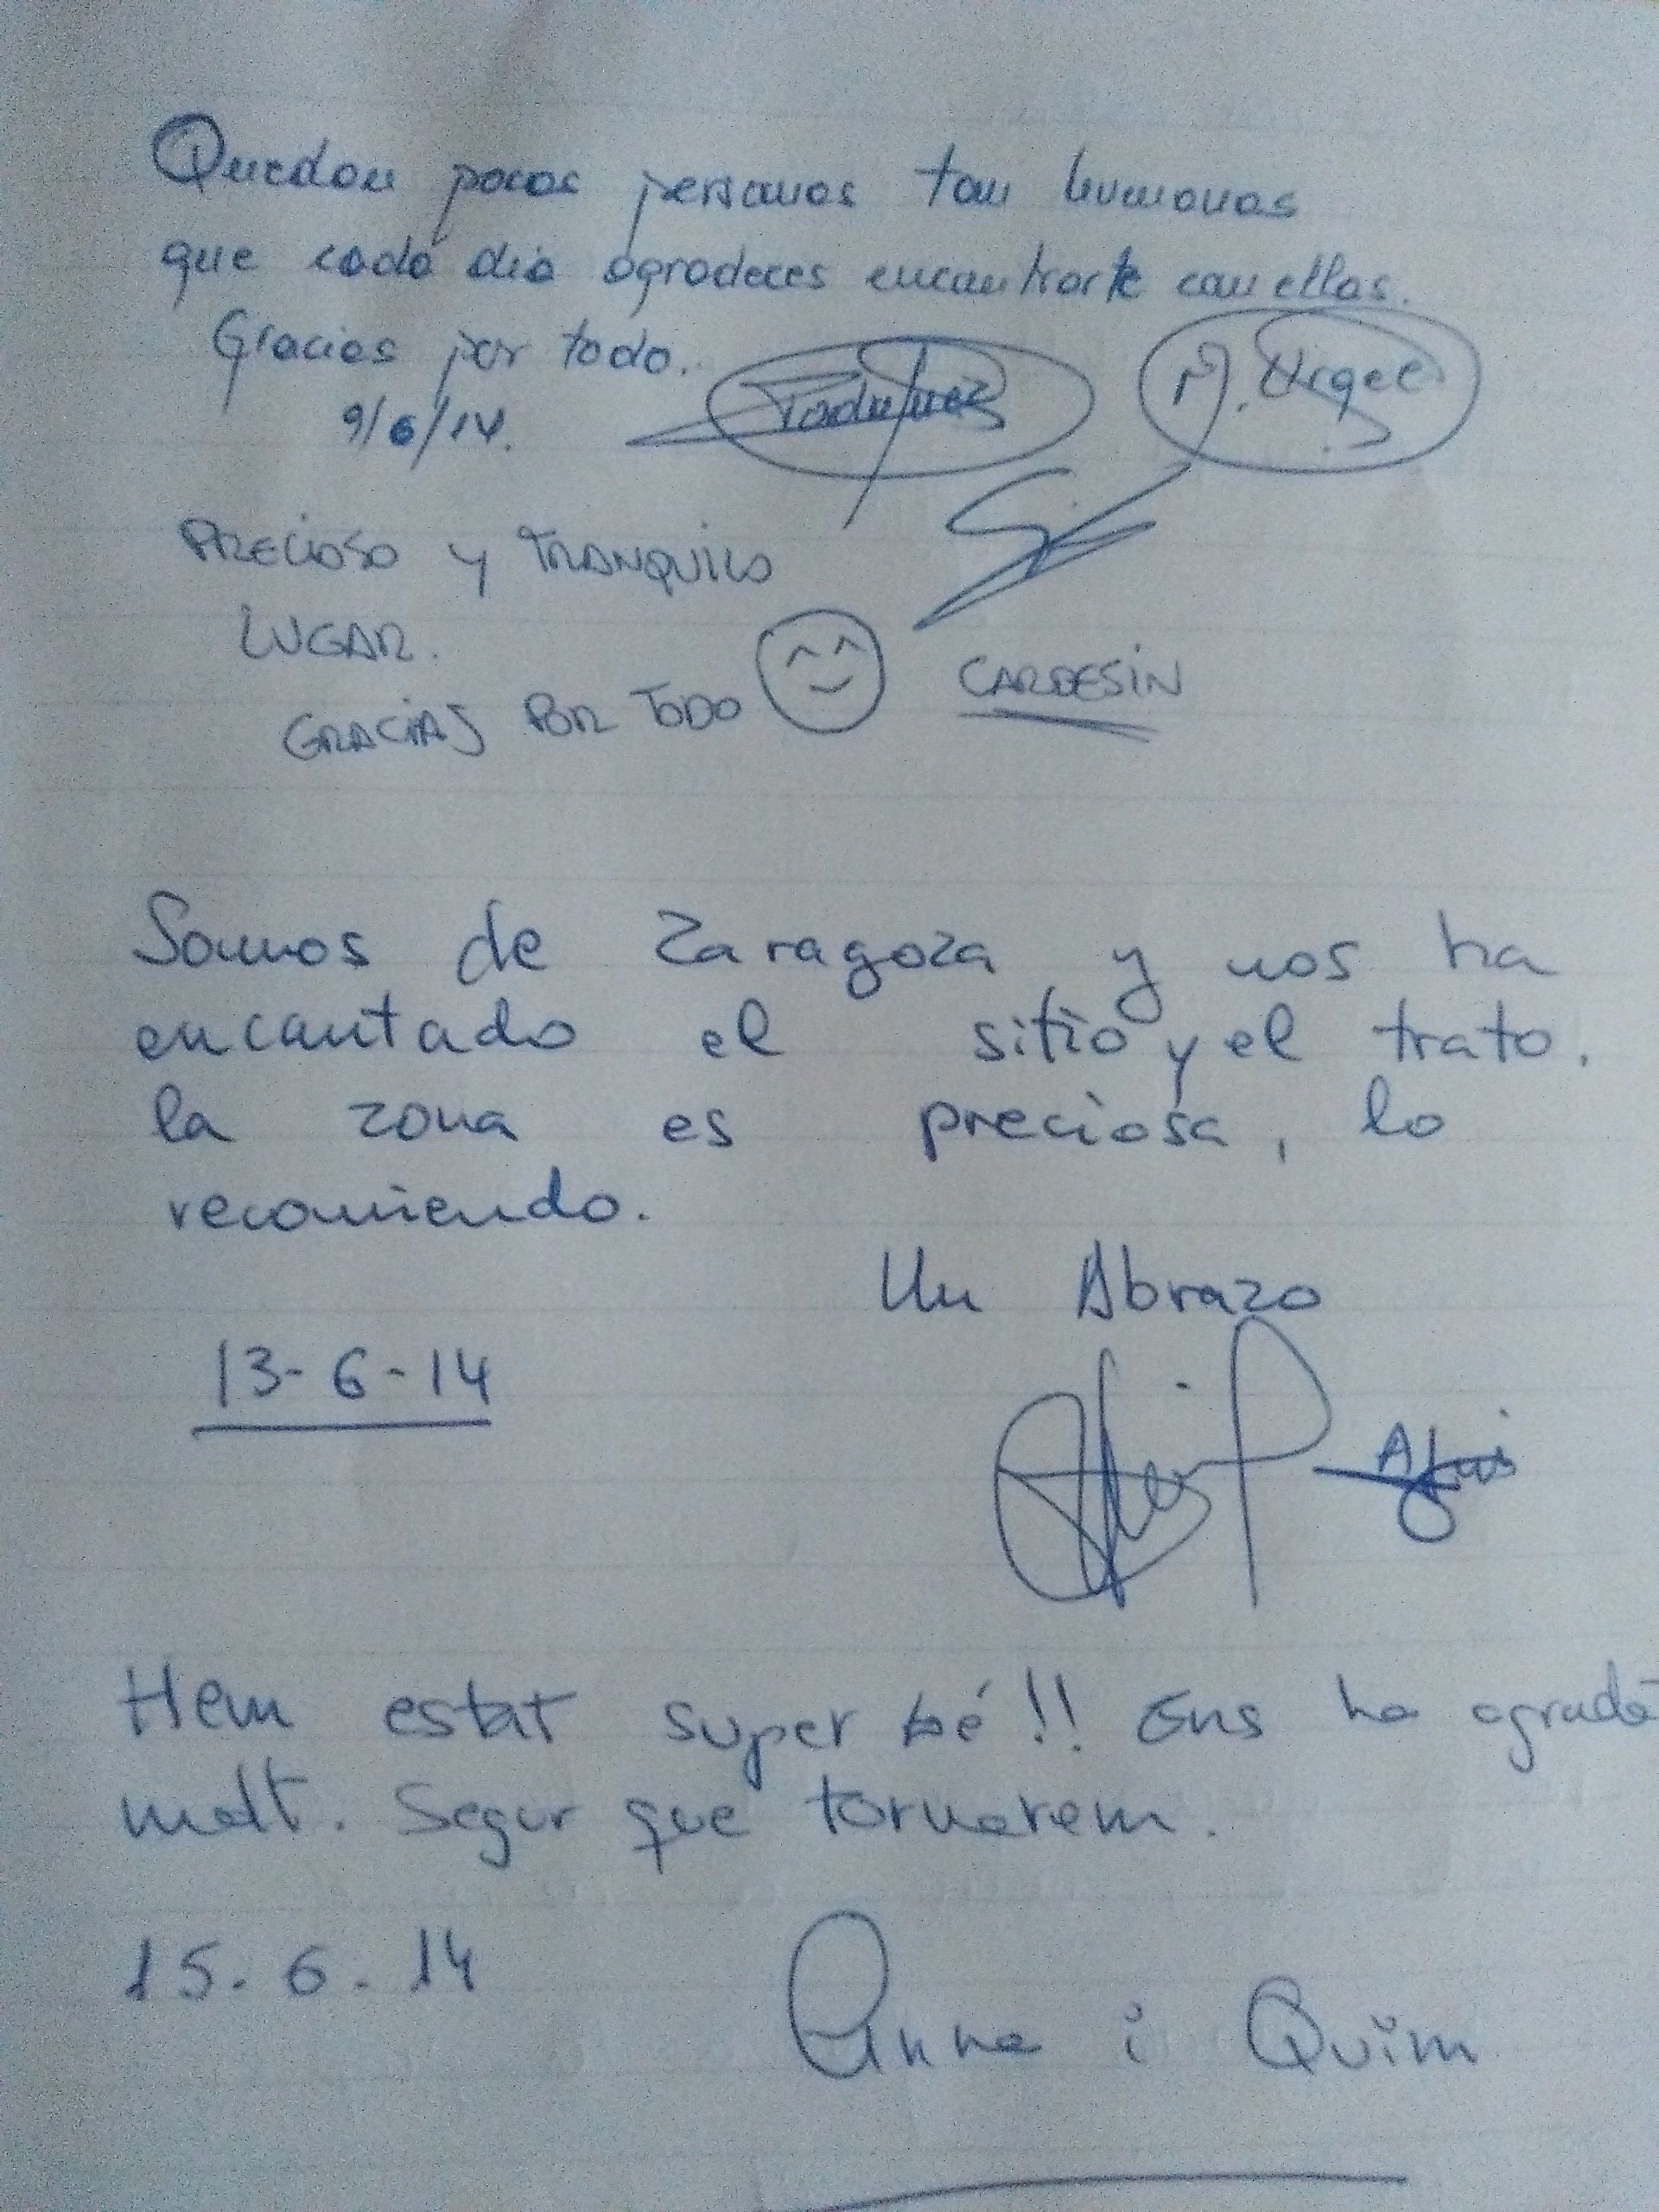 Quedan pocas personas tan humanas
que cada dia agradeces encontrarte con ellas.
Gracias por todo.
9/6/14.
PRECIOSO Y TRANQUILO
LUGAR.
GRACIAS POR TODO
CARDESIN
Somos de Zaragoza y nos ha
encantado el sitio y el trato.
la zona es preciosa, lo
recomiendo.
Un Abrazo
13-6-14
Hem estat super bé!! Ens ha agradat
molt. Segur que tornarem.
15.6.14
Anna i Quim